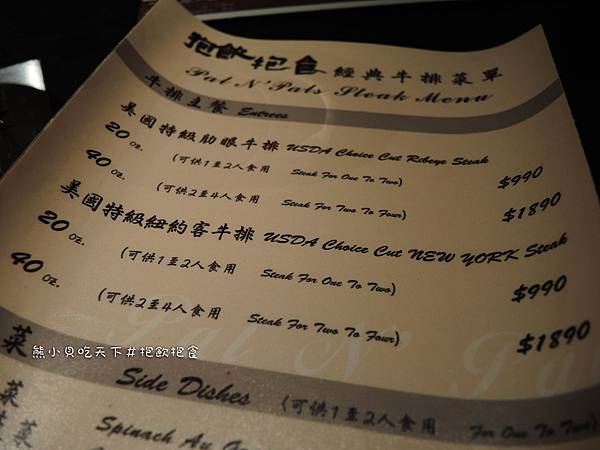 抱飲抱食 經典牛排菜單
Pal N' Pals Steak Menu
牛排主餐 Entrees
美國特級肋眼牛排 USDA Choice Cut Ribeye Steak
20 OZ. (可供1至2人食用 Steak For One To Two) $990
40 OZ. (可供2至4人食用 Steak For Two To Four) $1890
美國特級紐約客牛排 USDA Choice Cut NEW YORK Steak
20 OZ. (可供1至2人食用 Steak For One To Two) $990
40 OZ. (可供2至4人食用 Steak For Two To Four) $1890
熊小貝吃天下#抱飲抱食
菜 Side Dishes (可供1至2人食用 For One To Two)
菜 Spinach Au
菜